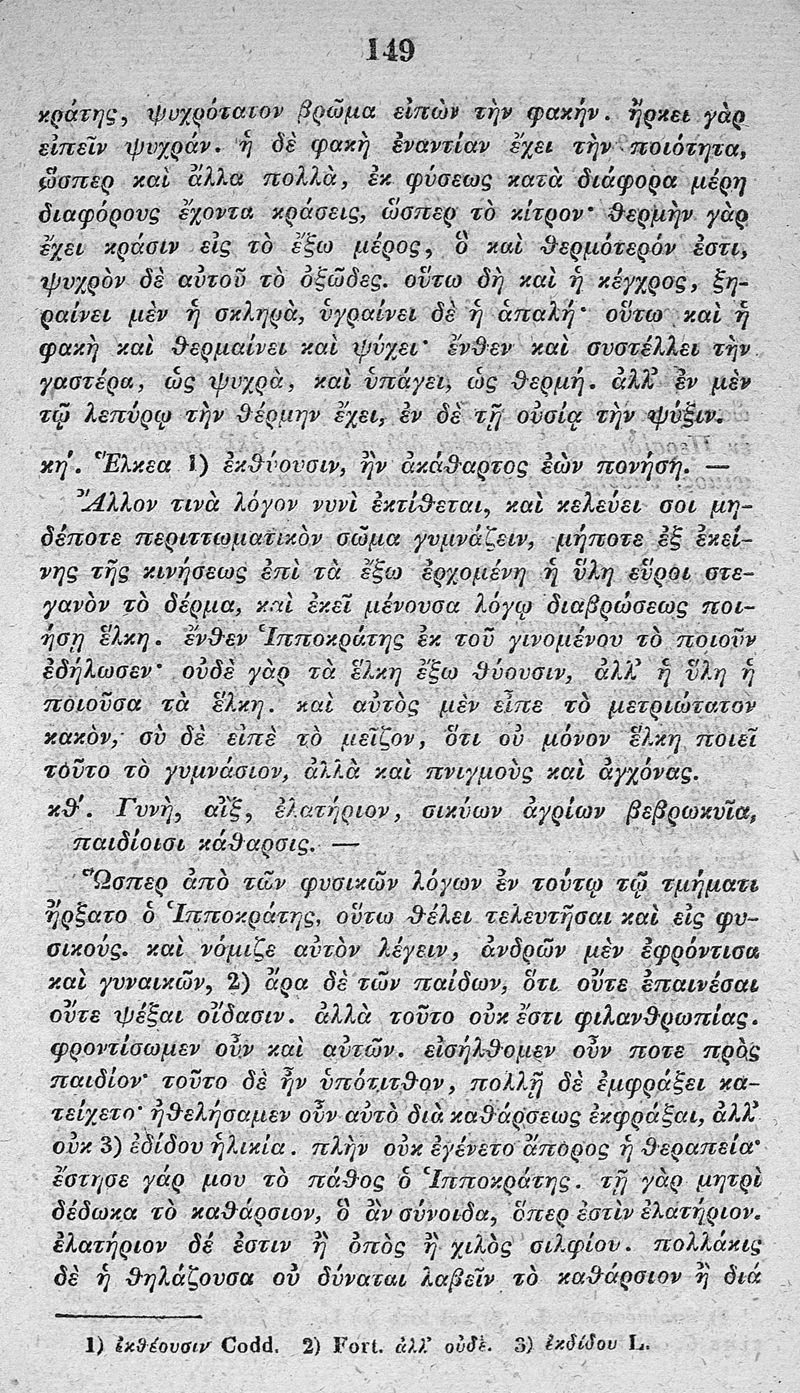 149
κράτης, ψυχρότατον βρῶμα εἰπὼν τὴν φακήν. ἤρκει γὰρ
εἰπεῖν ψυχράν. ἡ δὲ φακὴ ἐναντίαν ἔχει τὴν ποιότητα,
ὥσπερ καὶ ἄλλα πολλὰ, ἐκ φύσεως κατὰ διάφορα μέρη
διαφόρους ἔχοντα κράσεις, ὥσπερ τὸ κίτρον· θερμὴν γὰρ
ἔχει κράσιν εἰς τὸ ἔξω μέρος, ὃ καὶ θερμότερόν ἐστι,
ψυχρὸν δὲ αὐτοῦ τὸ ὀξῶδες. οὕτω δὴ καὶ ἡ κέγχρος, ξη-
ραίνει μὲν ἡ σκληρὰ, ὑγραίνει δὲ ἡ ἁπαλή· οὕτω καὶ ἡ
φακὴ καὶ θερμαίνει καὶ ψύχει· ἔνθεν καὶ συστέλλει τὴν
γαστέρα, ὡς ψυχρὰ, καὶ ὑπάγει, ὡς θερμή. ἀλλ' ἐν μὲν
τῷ λεπύρῳ τὴν θέρμην ἔχει, ἐν δὲ τῇ οὐσίᾳ τὴν ψύξιν.
κη'. Ἕλκεα 1) ἐκθύουσιν, ἢν ἀκάθαρτος ἐὼν πονήσῃ. —
Ἄλλον τινὰ λόγον νυνὶ ἐκτίθεται, καὶ κελεύει σοι μη-
δέποτε περιττωματικὸν σῶμα γυμνάζειν, μήποτε ἐξ ἐκεί-
νης τῆς κινήσεως ἐπὶ τὰ ἔξω ἐρχομένη ἡ ὕλη εὕροι στε-
γανὸν τὸ δέρμα, καὶ ἐκεῖ μένουσα λόγῳ διαβρώσεως ποι-
ήσῃ ἕλκη. ἔνθεν Ἱπποκράτης ἐκ τοῦ γινομένου τὸ ποιοῦν
ἐδήλωσεν· οὐδὲ γὰρ τὰ ἕλκη ἔξω θύουσιν, ἀλλ' ἡ ὕλη ἡ
ποιοῦσα τὰ ἕλκη. καὶ αὐτὸς μὲν εἶπε τὸ μετριώτατον
κακὸν, σὺ δὲ εἰπὲ τὸ μεῖζον, ὅτι οὐ μόνον ἕλκη ποιεῖ
τοῦτο τὸ γυμνάσιον, ἀλλὰ καὶ πνιγμοὺς καὶ ἀγχόνας.
κθ'. Γυνὴ, αἲξ, ἐλατήριον, σικύων ἀγρίων βεβρωκυῖα,
παιδίοισι κάθαρσις. —
Ὥσπερ ἀπὸ τῶν φυσικῶν λόγων ἐν τούτῳ τῷ τμήματι
ἤρξατο ὁ Ἱπποκράτης, οὕτω θέλει τελευτῆσαι καὶ εἰς φυ-
σικούς. καὶ νόμιζε αὐτὸν λέγειν, ἀνδρῶν μὲν ἐφρόντισα
καὶ γυναικῶν, 2) ἄρα δὲ τῶν παίδων, ὅτι οὔτε ἐπαινέσαι
οὔτε ψέξαι οἴδασιν. ἀλλὰ τοῦτο οὐκ ἔστι φιλανθρωπίας.
φροντίσωμεν οὖν καὶ αὐτῶν. εἰσήλθομεν οὖν ποτε πρὸς
παιδίον· τοῦτο δὲ ἦν ὑπότιτθον, πολλῇ δὲ ἐμφράξει κα-
τείχετο· ἠθελήσαμεν οὖν αὐτὸ διὰ καθάρσεως ἐκφράξαι, ἀλλ'
οὐκ 3) ἐδίδου ἡλικία. πλὴν οὐκ ἐγένετο ἄπορος ἡ θεραπεία·
ἔστησε γάρ μου τὸ πάθος ὁ Ἱπποκράτης. τῇ γὰρ μητρὶ
δέδωκα τὸ καθάρσιον, ὃ ἂν σύνοιδα, ὅπερ ἐστὶν ἐλατήριον.
ἐλατήριον δέ ἐστιν ἢ ὀπὸς ἢ χιλὸς σιλφίου. πολλάκις
δὲ ἡ θηλάζουσα οὐ δύναται λαβεῖν τὸ καθάρσιον ἢ διά
1) ἐκθέουσιν Codd. 2) Fort. ἀλλ' οὐδὲ. 3) ἐκδίδου L.